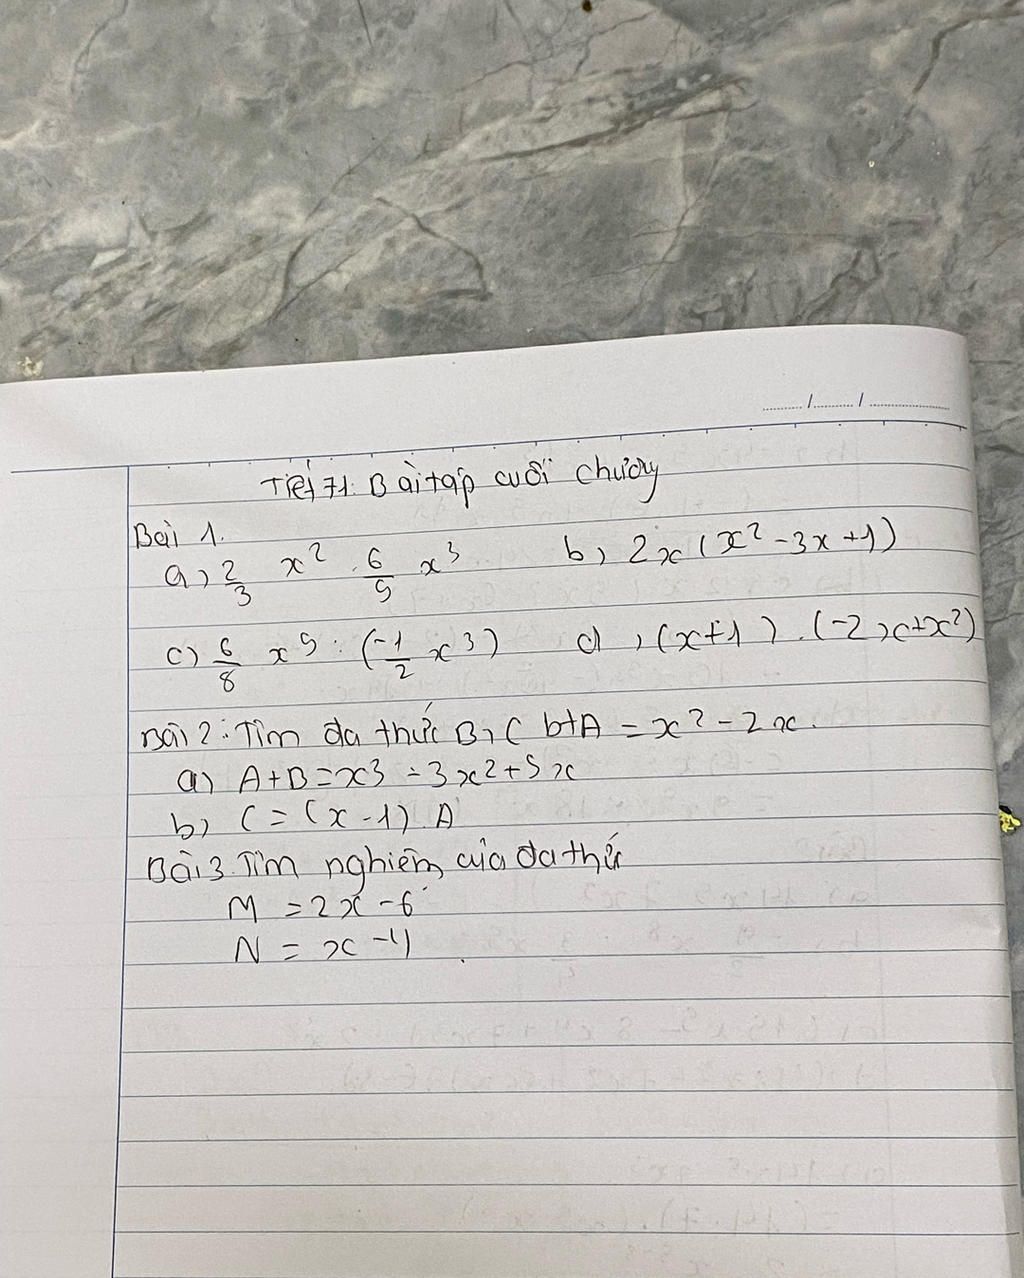 Tiết 71: Bài tập cuối chương
Bài 1.
a, 2/3 x² . 6/5 x³ b, 2x (x² - 3x + 1)
c) 6/8 x⁵ : (-1/2 x³) d, (x+1) . (-2x+x²)
Bài 2: Tìm đa thức B, C bt A = x² - 2x.
a) A + B = x3 - 3x2 + 5x
b, C = (x - 1). A
Bài 3. Tìm nghiệm của đa thức
M = 2x - 6
N = x - 4